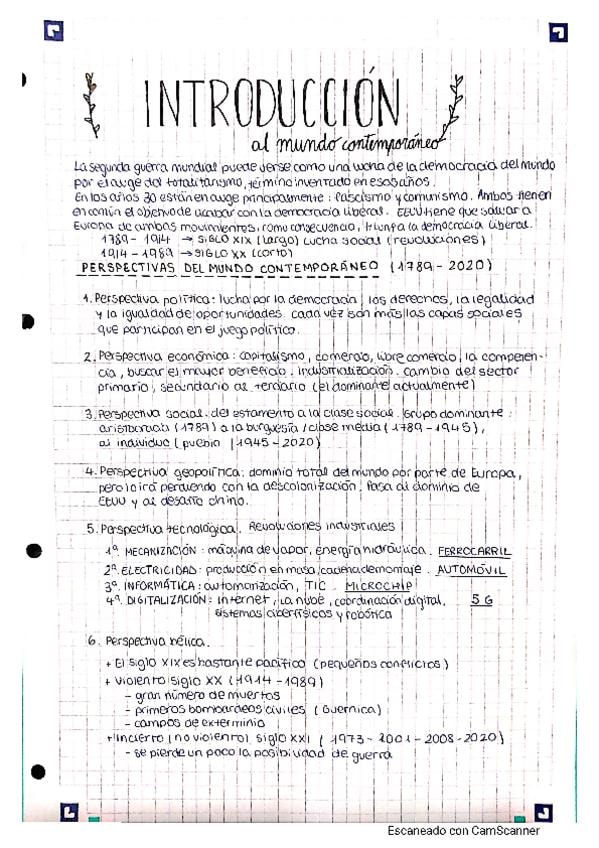 INTRODUCCIÓN
al mundo contemporáneo
La segunda guerra mundial puede verse como una lucha de la democracia del mundo
por el auge del totalitarismo, término inventado en esos años.
En los años 30 están en auge principalmente: fascismo y comunismo. Ambos tienen
en común el objetivo de acabar con la democracia liberal. EEUU tiene que salvar a
Europa de ambos movimientos, como consecuencia, triunfa la democracia liberal.
1789 - 1914 → SIGLO XIX (largo) lucha social (revoluciones)
1914 - 1989 → SIGLO XX (corto)
PERSPECTIVAS DEL MUNDO CONTEMPORÁNEO (1789 - 2020)
1. Perspectiva política: lucha por la democracia, los derechos, la legalidad
y la igualdad de oportunidades. cada vez son más las capas sociales
que participan en el juego político.
2. Perspectiva económica: capitalismo, comercio, libre comercio, la competen-
cia, buscar el mayor beneficio. Industrialización. cambio del sector
primario, secundario al terciario (el dominante actualmente)
3. Perspectiva social. del estamento a la clase social. Grupo dominante:
aristocracia (1789) a la burguesía / clase media (1789 - 1945),
al individuo (pueblo) (1945 - 2020)
4. Perspectiva geopolítica: dominio total del mundo por parte de Europa,
pero lo irá perdiendo con la descolonización. Pasa al dominio de
EEUU y al desafío chino.
5. Perspectiva tecnológica. Revoluciones industriales
1ª. MECANIZACIÓN: máquina de vapor, energía hidráulica. FERROCARRIL
2ª. ELECTRICIDAD: producción en masa, cadena de montaje. AUTOMÓVIL
3ª. INFORMÁTICA: automatización, TIC. MICROCHIP
4ª. DIGITALIZACIÓN: internet, la nube, coordinación digital, 5G
sistemas ciberfísicos y robótica
6. Perspectiva bélica.
+ El siglo XIX es bastante pacífico (pequeños conflictos)
+ Violento siglo XX (1914 - 1989)
- gran número de muertos
- primeros bombardeos civiles (Guernica)
- campos de exterminio
+ Incierto (no violento) siglo XXI (1973 - 2001 - 2008 - 2020)
- se pierde un poco la posibilidad de guerra
Escaneado con CamScanner